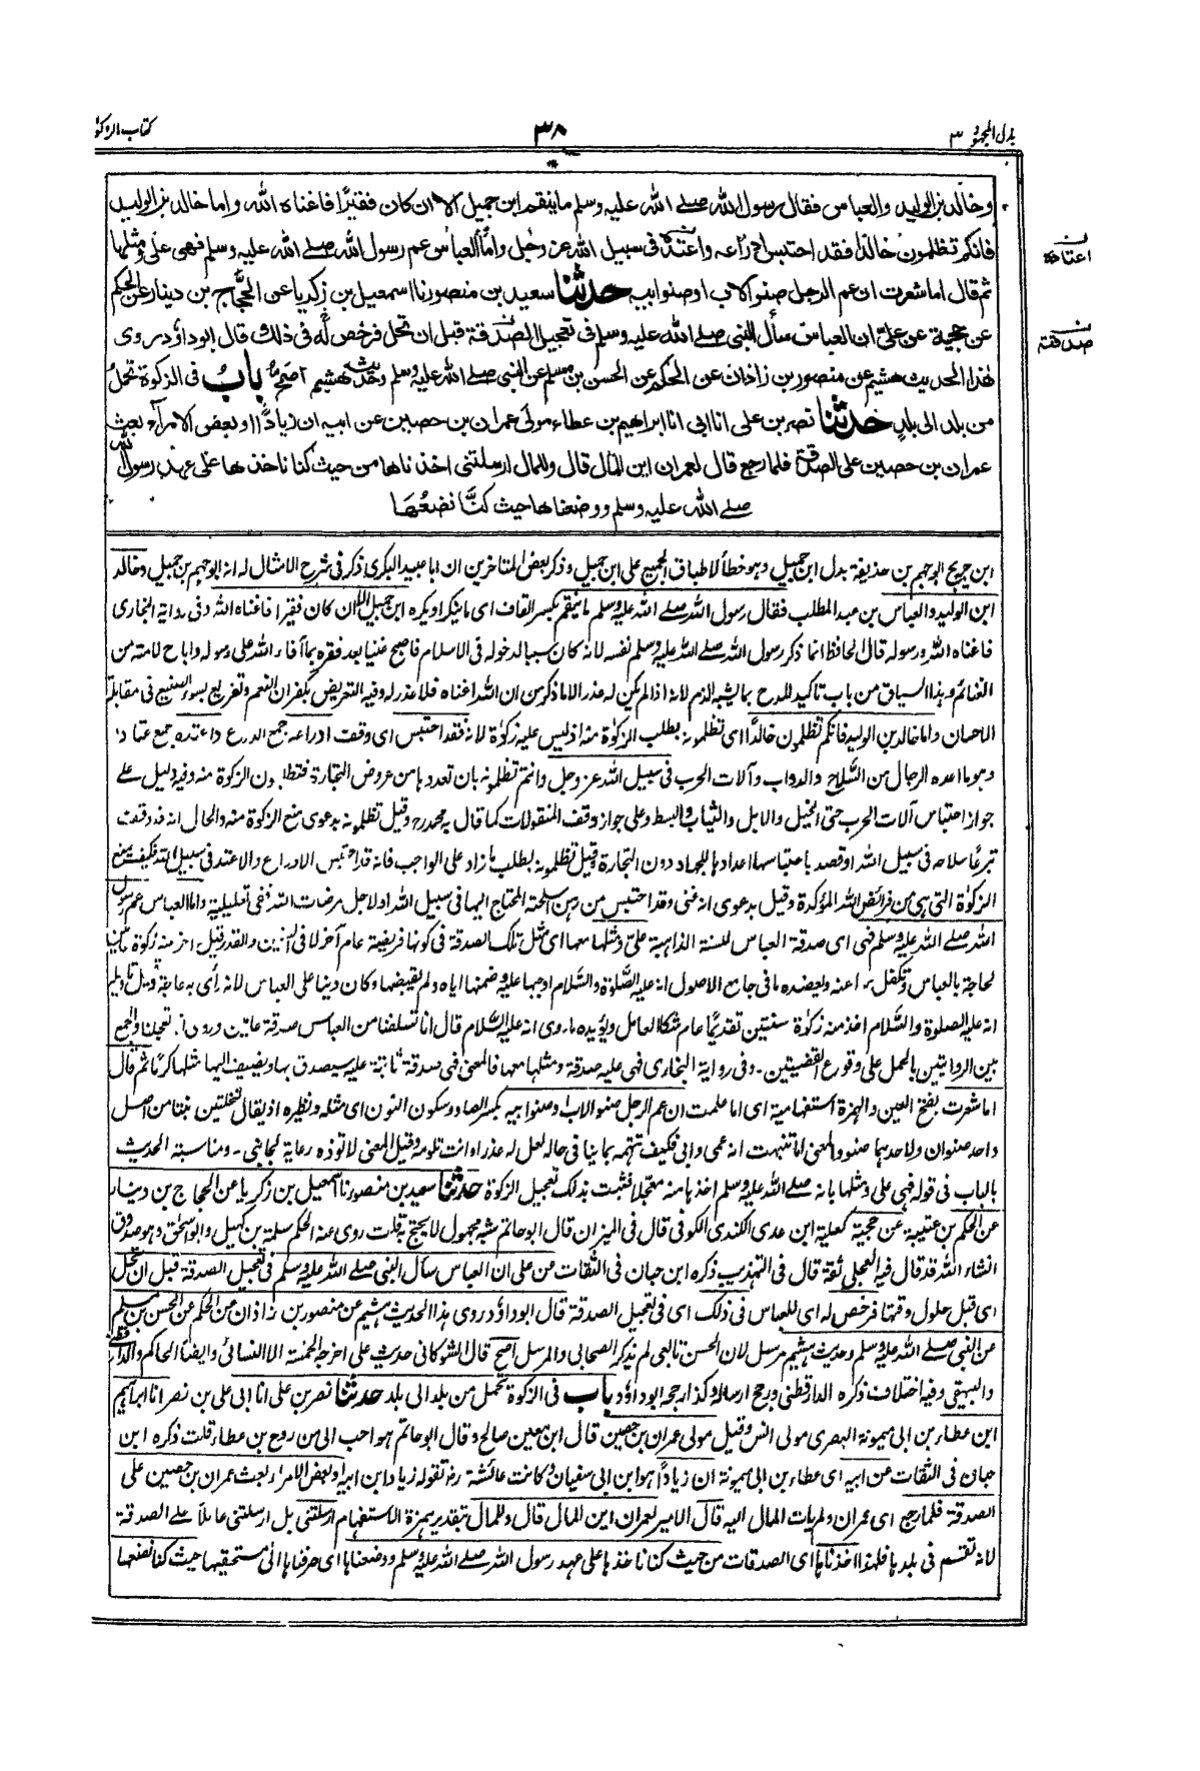 بذل المجهود ٣
٣٨
كتاب الزكوة
وخالد بن الوليد والعباس فقال رسول الله صلے الله عليه وسلم ما ينقم ابن جميل الا ان كان فقيرًا فاغناه الله واما خالد بن الوليد
فانكم تظلمون خالدًا فقد احتبس ادراعه واعتده فى سبيل الله عز وجل واما العباس عم رسول الله صلے الله عليه وسلم فهى على ومثلها
اعتاده
ثم قال اما شعرت ان عم الرجل صنو الاب او صنو ابيه حدثنا سعيد بن منصور نا اسمعيل بن زكريا عن الحجاج بن دينار عن الحكم
عن حجية عن على ان العباس سأل النبى صلے الله عليه وسلم فى تعجيل الصدقة قبل ان تحل فرخص له فى ذلك قال ابو داؤد روى
صدقته
هذا الحديث هشيم عن منصور بن زاذان عن الحكم عن الحسن بن مسلم عن النبى صلے الله عليه وسلم وحديث هشيم اصح باب فى الزكوة تحمل
من بلد الى بلد حدثنا نصر بن على انا ابى انا ابراهيم بن عطاء مولى عمران بن حصين عن ابيه ان زيادًا او بعض الامراء بعث
عمران بن حصين على الصدقة فلما رجع قال لعمران اين المال قال وللمال ارسلتنى اخذناها من حيث كنا ناخذها على عهد رسول الله
صلے الله عليه وسلم ووضعناها حيث كنا نضعها
ابن جريج ابو جهم بن حذيفة بدل ابن جميل وهو خطأ لاطباق الجميع على ابن جميل وذكر بعض المتاخرين ان ابا عبيد البكرى ذكر فى شرح الامثال له انه ابو جهم بن جميل وخالد
ابن الوليد والعباس بن عبد المطلب فقال رسول الله صلے الله عليه وسلم ما ينقم بكسر القاف اى ما ينكر او يكره ابن جميل الا ان كان فقيرا فاغناه الله وفى رواية البخارى
فاغناه الله ورسوله قال الحافظ انما ذكر رسول الله صلے الله عليه وسلم نفسه لانه كان سببا لدخوله فى الاسلام فاصبح غنيا بعد فقره بما آفاء الله على رسوله واباح لامته من
الغنائم وهذا السياق من باب تاكيد المدح بما يشبه الذم لانه اذا لم يكن له عذر الا ما ذكر من ان الله اغناه فلا عذر له وفيه التعريض بكفران النعم وتقريع بسوء الصنيع فى مقابلة
الاحسان واما خالد بن الوليد فانكم تظلمون خالدًا اى تظلمونه بطلب الزكوة منه اذ ليس عليه زكوة لانه فقد احتبس اى وقف ادراعه جمع الدرع واعتده جمع عتاد
وهو ما اعده الرجال من السلاح والدواب وآلات الحرب فى سبيل الله عز وجل وانتم تظلمونه بان تعدوها من عروض التجارة فتطلبون الزكوة منه وفيه دليل على
جواز احتباس آلات الحرب حتى الخيل والابل والثياب والبسط وعلى جواز وقف المنقولات كما قال به محمد رح وقيل تظلمونه بدعوى منع الزكوة منه والحال انه قد وقف
تبرعًا سلاحه فى سبيل الله او قصد باحتباسها اعدادها للجهاد دون التجارة وقيل تظلمونه بطلب ما زاد على الواجب فانه قد احتبس الادراع والاعتد فى سبيل الله فكيف يمنع
الزكوة التى هى من فرائض الله المؤكدة وقيل بدعوى انه غنى وقد احتبس من رهن اسلحته المحتاج اليها فى سبيل الله او لاجل مرضات الله ففى تعليلية واما العباس عم رسول
الله صلے الله عليه وسلم فهى اى صدقة العباس للسنة الذاهبة علىّ ومثلها معها اى مثل تلك الصدقة فى كونها فريضة عام آخر لا فى السنين والقدر قيل اخر منه زكوة عامين
لحاجة بالعباس وتكفل بها عنه ويعضده ما فى جامع الاصول انه عليه الصلوة والسلام اوجبها عليه وضمنها اياه ولم يقبضها وكان دينا على العباس لانه رأى به حاجة وقيل تاويله
انه عليه الصلوة والسلام اخذ منه زكوة سنتين تقديمًا عام شكا العامل ويؤيده ما روى انه عليه السلام قال انا تسلفنا من العباس صدقة عامين وروى انا تعجلنا والجمع
بين الروايتين بالحمل على وقوع القضيتين۔ وفى رواية البخارى فهى عليه صدقة ومثلها معها فالمعنى فهى صدقة ثابتة عليه سيصدق بها ويضيف اليها مثلها كرمًا ثم قال
اما شعرت بفتح العين والهمزة استفهامية اى اما علمت ان عم الرجل صنو الاب او صنو ابيه بكسر الصاد وسكون النون اى مثله ونظيره اذ يقال لنخلتين نبتا من اصل
واحد صنوان ولاحدهما صنو والمعنى اما تنبهت انه عمى وابى فكيف تتهمه بما ينافى حاله لعل له عذرا وانت تلومه وقيل المعنى لا توذه رعاية لجانبى۔ ومناسبة الحديث
بالباب فى قوله فهى على ومثلها بانه صلے الله عليه وسلم اخذها منه معجلا فثبت بذلك تعجيل الزكوة حدثنا سعيد بن منصور نا اسمعيل بن زكريا عن الحجاج بن دينار
عن الحكم بن عتيبة عن حجية كعلية ابن عدى الكندى الكوفى قال فى الميزان قال ابو حاتم شبه مجهول لا يحتج به قلت روى عنه الحكم وسلمة بن كهيل وابو اسحق وهو صدوق
انشاء الله قد قال فيه العجلى ثقة قال فى التهذيب ذكره ابن حبان فى الثقات عن على ان العباس سأل النبى صلے الله عليه وسلم فى تعجيل الصدقة قبل ان تحل
اى قبل حلول وقتها فرخص له اى للعباس فى ذلك اى فى تعجيل الصدقة قال ابو داؤد روى هذا الحديث هشيم عن منصور بن زاذان عن الحكم عن الحسن بن مسلم
عن النبى صلے الله عليه وسلم وحديث هشيم مرسل لان الحسن تابعى لم يذكر الصحابى والمرسل اصح قال الشوكانى حديث على اخرجه الخمسة الا النسائى وايضا الحاكم والدارقطنى
والبيهقى وفيه اختلاف ذكره الدارقطنى ورجح ارساله وكذا رجحه ابو داؤد باب فى الزكوة تحمل من بلد الى بلد حدثنا نصر بن على انا ابى على بن نصر انا ابراهيم
ابن عطاء بن ابى ميمونة البصرى مولى انس وقيل مولى عمران بن حصين قال ابن معين صالح وقال ابو حاتم هو احب الى من روح بن عطاء قلت ذكره ابن
حبان فى الثقات عن ابيه اى عطاء بن ابى ميمونة ان زيادًا هو ابن ابى سفيان وكانت عائشة رض تقوله زياد ابن ابيه او بعض الامراء بعث عمران بن حصين على
الصدقة فلما رجع اى عمران ولم يات المال اليه قال الامير لعمران اين المال قال وللمال بتقدير همزة الاستفهام ارسلتنى بل ارسلتنى عاملًا على الصدقة
لانه تقتسم فى بلدها فلهذا اخذناها اى الصدقات من حيث كنا ناخذها على عهد رسول الله صلے الله عليه وسلم ووضعناها اى صرفناها الى مستحقيها حيث كنا نضعها